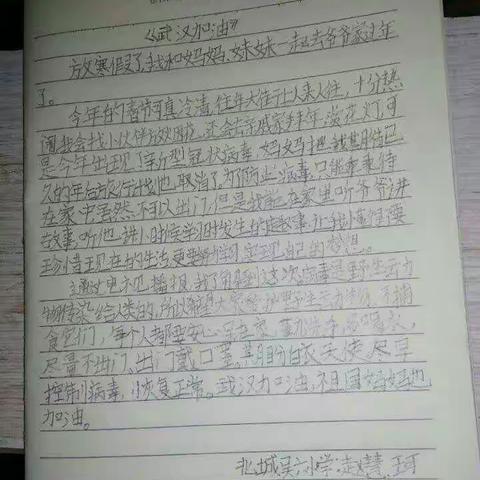 《武汉加油》
放寒假了,我和妈妈、妹妹一起去爷爷家过年
了。
今年的春节真冷清,往年大街上人来人往,十分热
闹我会找小伙伴放鞭炮,还会走亲戚家拜年,赏花灯,可
是今年出现了新型冠状病毒,妈妈
久的年后旅行计划也取消了。为防止病毒,只能乖乖待
在家中虽然不可以出门,但是我能在家里听爷爷讲
故事,听他讲小时候学习时发生的趣事,让我懂得要
珍惜现在的生活更要好好学习实现自己的梦想。
通过电视播报,我了解到这次病毒是野生动
物传染给人类的,所以希望大家爱护野生动物,不捕
食它们,每个人都要安心呆在家,勤洗手,多喝水,
尽量不出门,出门戴口罩,白衣天使尽早
控制病毒,恢复正常。武汉加油,祖国妈妈也
加油。
北城吴六小学:赵慧珂